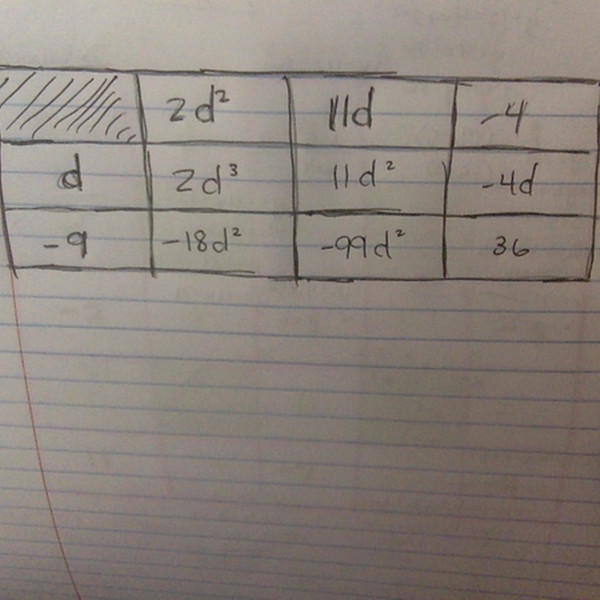 2d² 11d -4
d 2d³ 11d² -4d
-9 -18d² -99d² 36